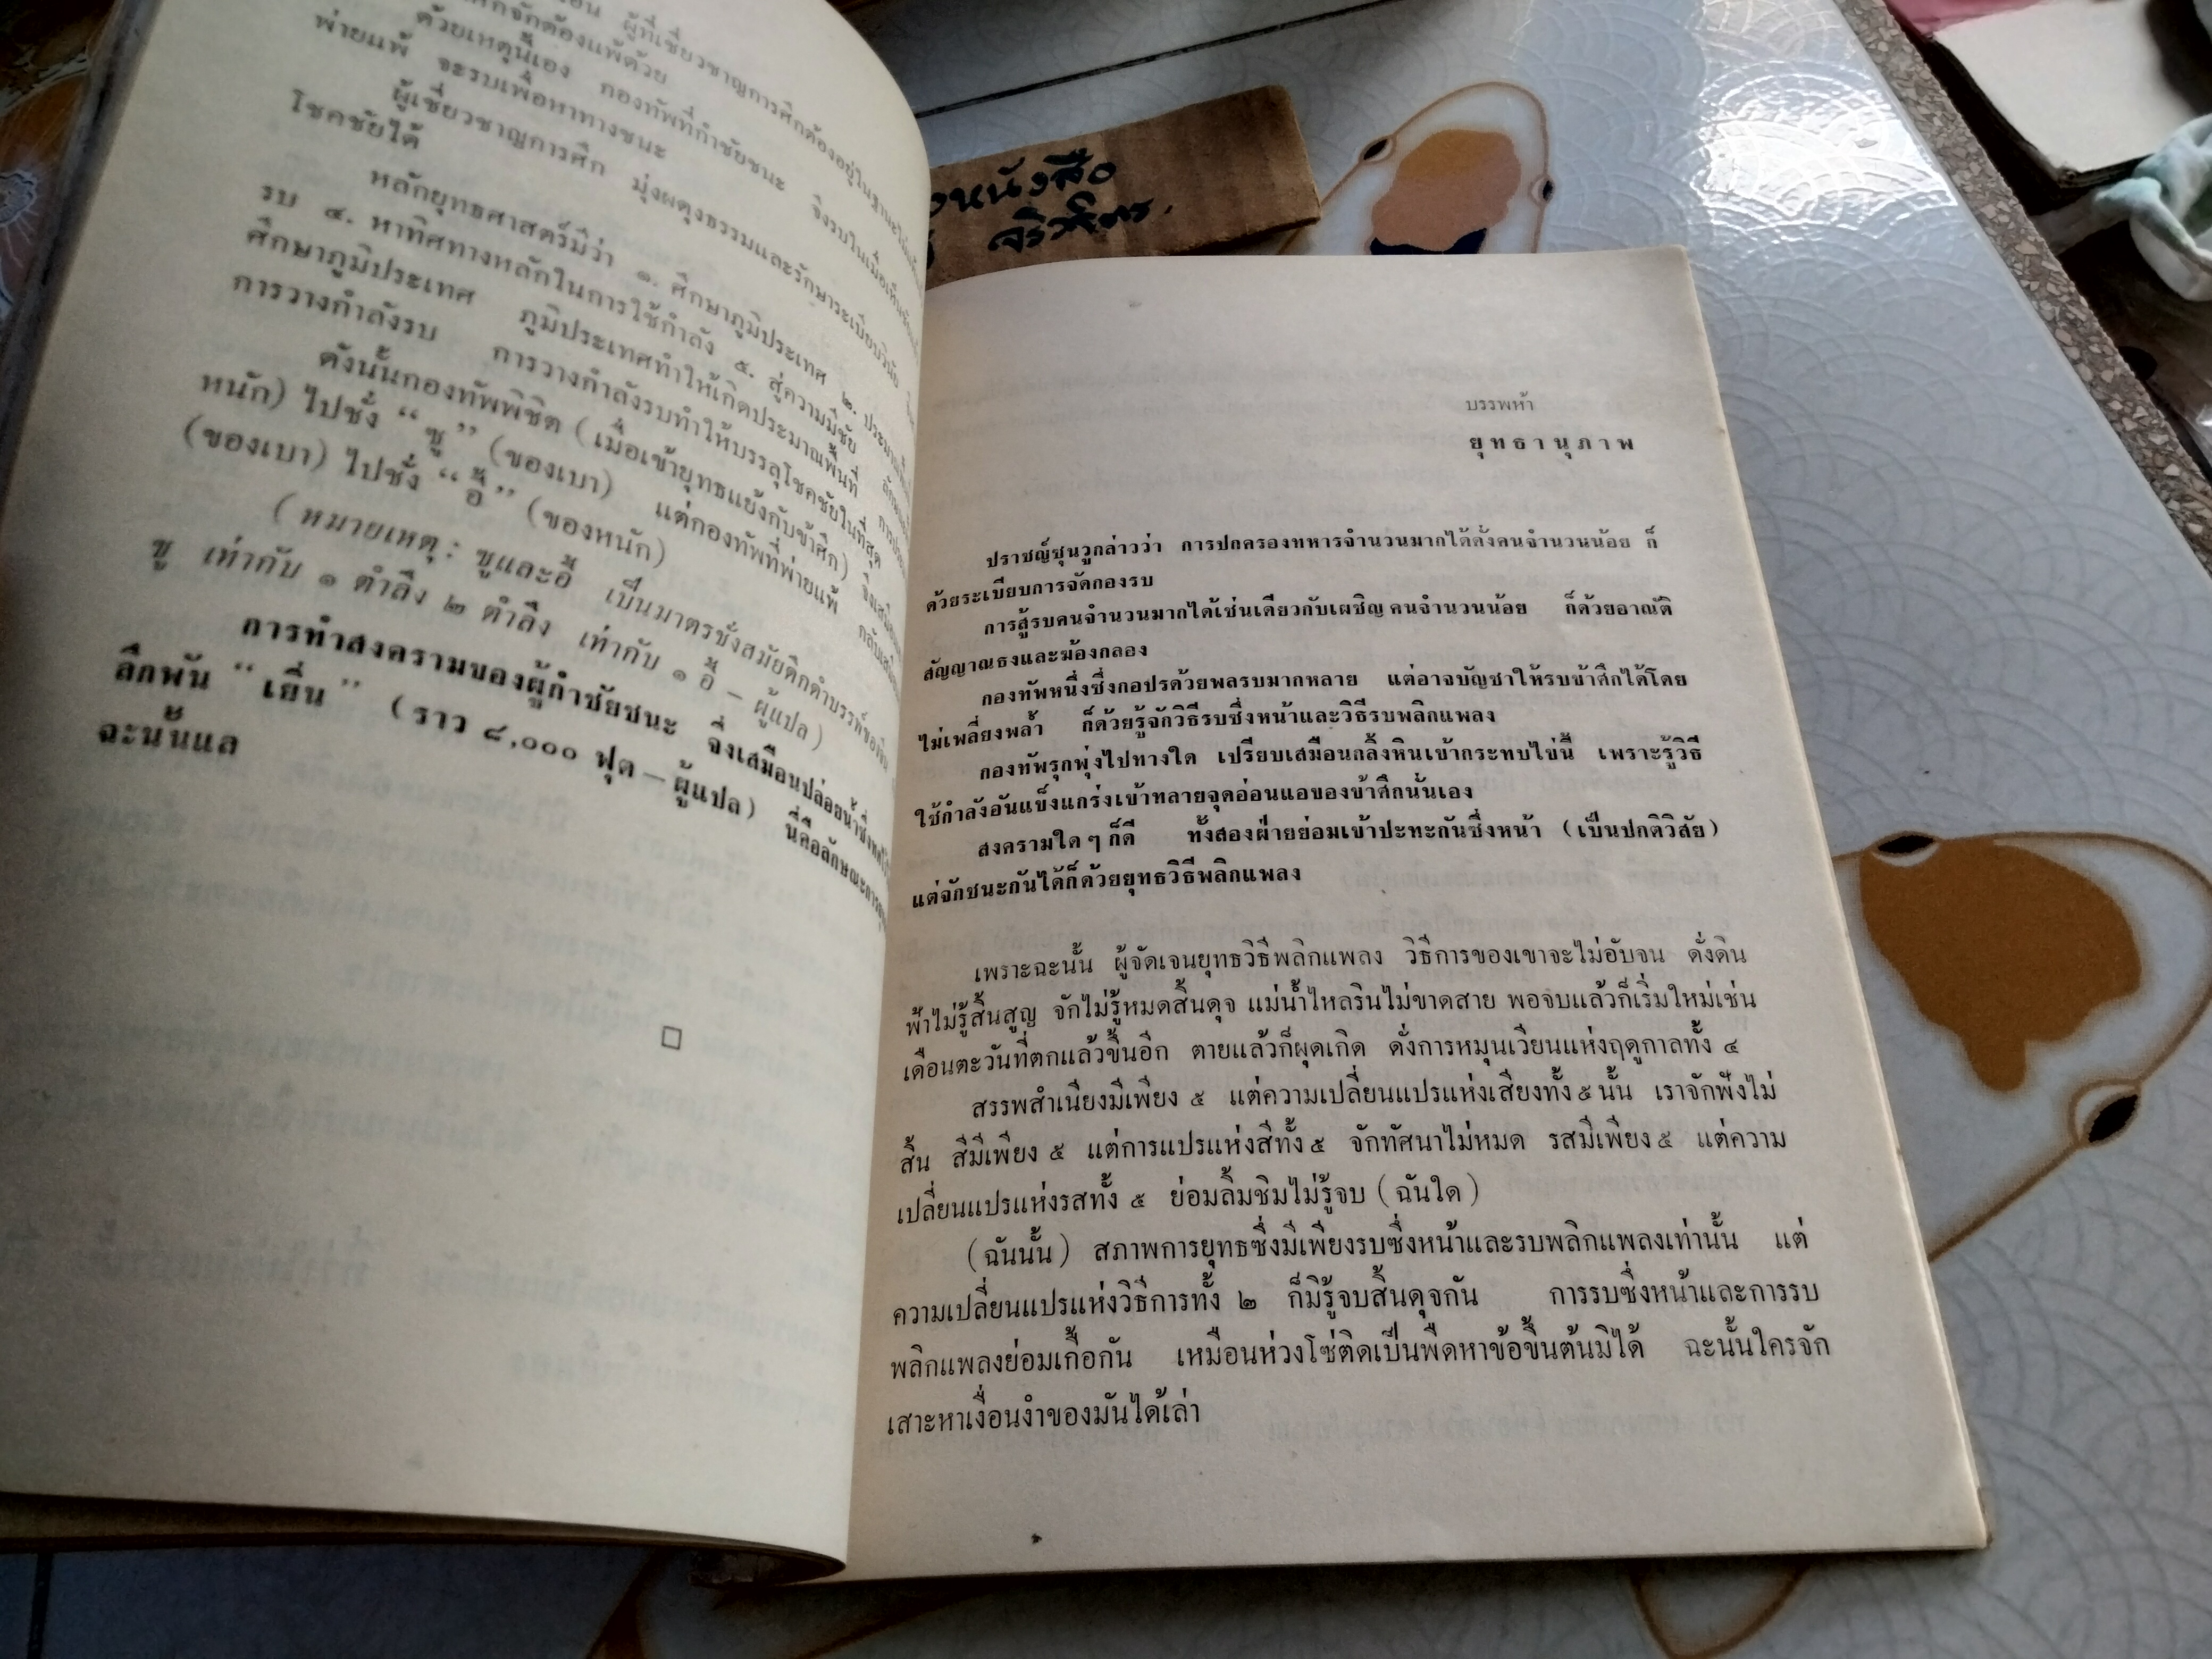 ผู้ที่เชี่ยวชาญการศึกต้องอยู่ในฐานะไม่
จักต้องแพ้ด้วย
ด้วยเหตุนี้เอง กองทัพที่กำชัยชนะ จึงรบในเมื่อเห็น
พ่ายแพ้ จะรบเพื่อหาทางชนะ
ผู้เชี่ยวชาญการศึก มุ่งผดุงธรรมและรักษาระเบียบวินัย
โชคชัยได้
หลักยุทธศาสตร์มีว่า ๑. ศึกษาภูมิประเทศ ๒.
รบ ๔. หาทิศทางหลักในการใช้กำลัง ๕. สู่ความมีชัย
ศึกษาภูมิประเทศ ภูมิประเทศทำให้เกิดประมาณพื้นที่
การวางกำลังรบ การวางกำลังรบทำให้บรรลุโชคชัยในที่สุด
ดังนั้นกองทัพพิชิต (เมื่อเข้ายุทธแย้งกับข้าศึก)
หนัก) ไปชั่ง “ซู” (ของเบา) แต่กองทัพที่พ่ายแพ้
(ของเบา) ไปชั่ง “อี้” (ของหนัก)
(หมายเหตุ: ซูและอี้ เป็นมาตรชั่งสมัยดึกดำบรรพ์ของจีน
ซู เท่ากับ ๑ ตำลึง ๒ ตำลึง เท่ากับ ๑ อี้ – ผู้แปล)
การทำสงครามของผู้กำชัยชนะ จึงเสมือนปล่อยน้ำซึ่ง
ลึกพัน “เยิ่น” (ราว ๘,๐๐๐ ฟุต – ผู้แปล) นี่คือลักษณะการ
ฉะนั้นแล
หนังสือ
บรรพห้า
ยุทธานุภาพ
ปราชญ์ซุนวูกล่าวว่า การปกครองทหารจำนวนมากได้ดั่งคนจำนวนน้อย ก็
ด้วยระเบียบการจัดกองรบ
การสู้รบคนจำนวนมากได้เช่นเดียวกับเผชิญคนจำนวนน้อย ก็ด้วยอาณัติ
สัญญาณธงและฆ้องกลอง
กองทัพหนึ่งซึ่งกอปรด้วยพลรบมากหลาย แต่อาจบัญชาให้รบข้าศึกได้โดย
ไม่เพลี่ยงพล้ำ ก็ด้วยรู้จักวิธีรบซึ่งหน้าและวิธีรบพลิกแพลง
กองทัพรุกพุ่งไปทางใด เปรียบเสมือนกลิ้งหินเข้ากระทบไข่นี้ เพราะรู้วิธี
ใช้กำลังอันแข็งแกร่งเข้าทลายจุดอ่อนแอของข้าศึกนั่นเอง
สงครามใด ๆ ก็ดี ทั้งสองฝ่ายย่อมเข้าปะทะกันซึ่งหน้า (เป็นปกติวิสัย)
แต่จักชนะกันได้ก็ด้วยยุทธวิธีพลิกแพลง
เพราะฉะนั้น ผู้จัดเจนยุทธวิธีพลิกแพลง วิธีการของเขาจะไม่อับจน ดั่งดิน
ฟ้าไม่รู้สิ้นสูญ จักไม่รู้หมดสิ้นดุจ แม่น้ำไหลรินไม่ขาดสาย พอจบแล้วก็เริ่มใหม่เช่น
เดือนตะวันที่ตกแล้วขึ้นอีก ตายแล้วก็ผุดเกิด ดั่งการหมุนเวียนแห่งฤดูกาลทั้ง ๔
สรรพสำเนียงมีเพียง ๕ แต่ความเปลี่ยนแปรแห่งเสียงทั้ง ๕ นั้น เราจักฟังไม่
สิ้น สีมีเพียง ๕ แต่การแปรแห่งสีทั้ง ๕ จักทัศนาไม่หมด รสมีเพียง ๕ แต่ความ
เปลี่ยนแปรแห่งรสทั้ง ๕ ย่อมลิ้มชิมไม่รู้จบ (ฉันใด)
(ฉันนั้น) สภาพการยุทธซึ่งมีเพียงรบซึ่งหน้าและรบพลิกแพลงเท่านั้น แต่
ความเปลี่ยนแปรแห่งวิธีการทั้ง ๒ ก็มิรู้จบสิ้นดุจกัน การรบซึ่งหน้าและการรบ
พลิกแพลงย่อมเกื้อกัน เหมือนห่วงโซ่ติดเป็นพืดหาข้อขึ้นต้นมิได้ ฉะนั้นใครจัก
เสาะหาเงื่อนงำของมันได้เล่า